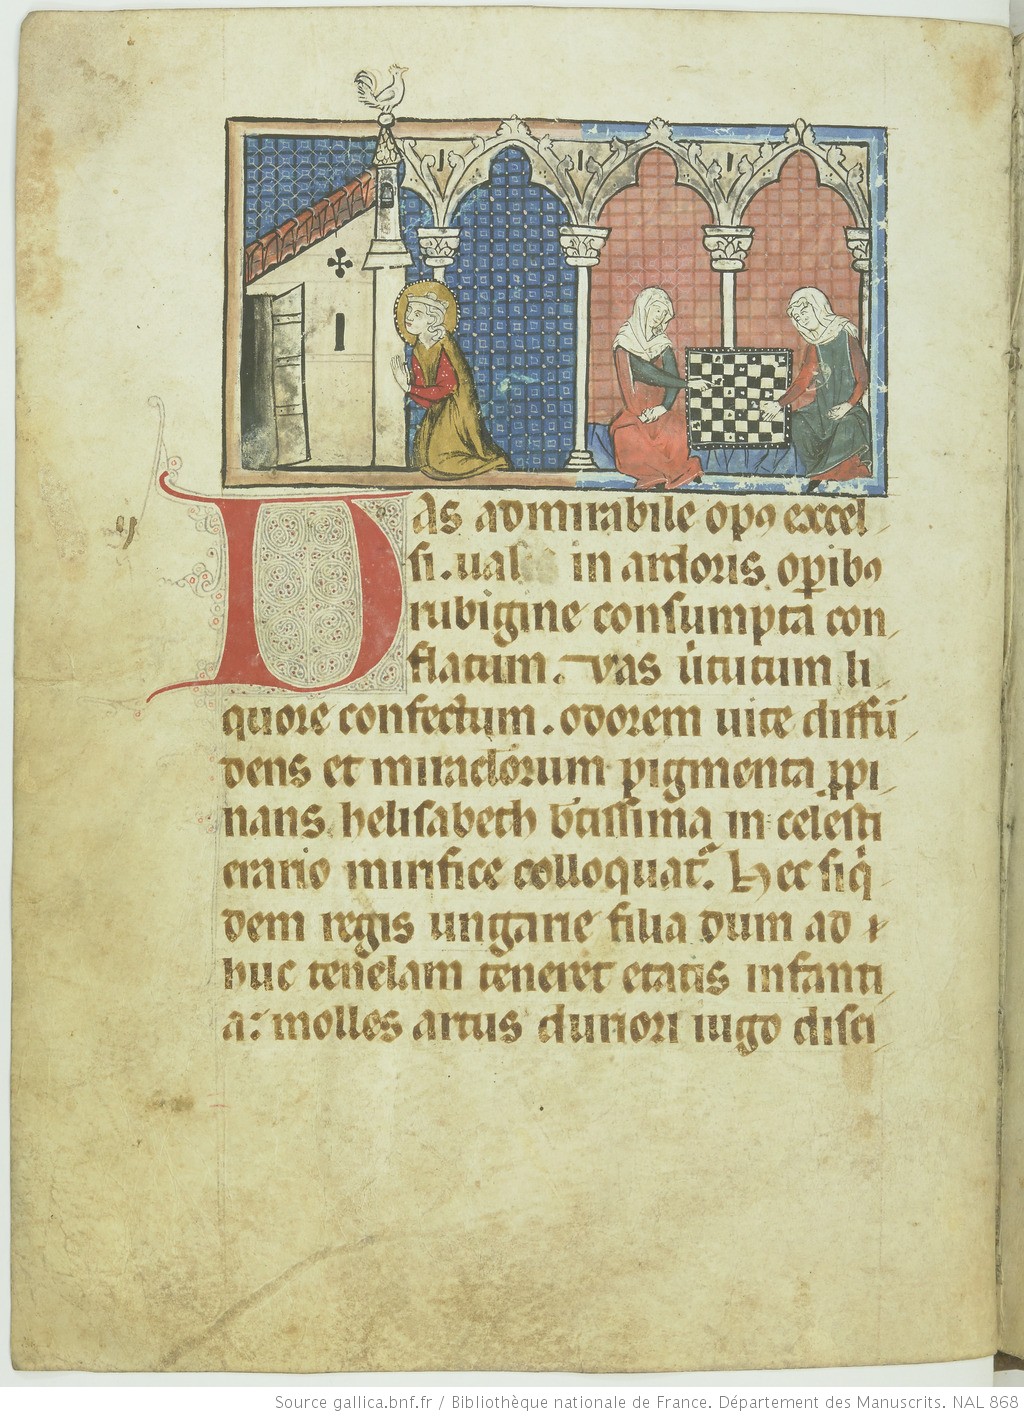 Vas admirabile opꝰ excel
si. in ardoris oꝑibꝰ
rubigine consumpta con
flatum. vas ũtutum li
quore confectum. odorem uite diffũ
dens et miraclorum pigmenta ꝓpi
nans helisabeth b̃tissima in celesti
erario mirifice colloquat᷑. Hec siq̇
dem regis ungarie filia dum ad
huc tenelam teneret etatis infanti
a: molles artus duriori iugo disci
Source gallica.bnf.fr / Bibliothèque nationale de France. Département des Manuscrits. NAL 868